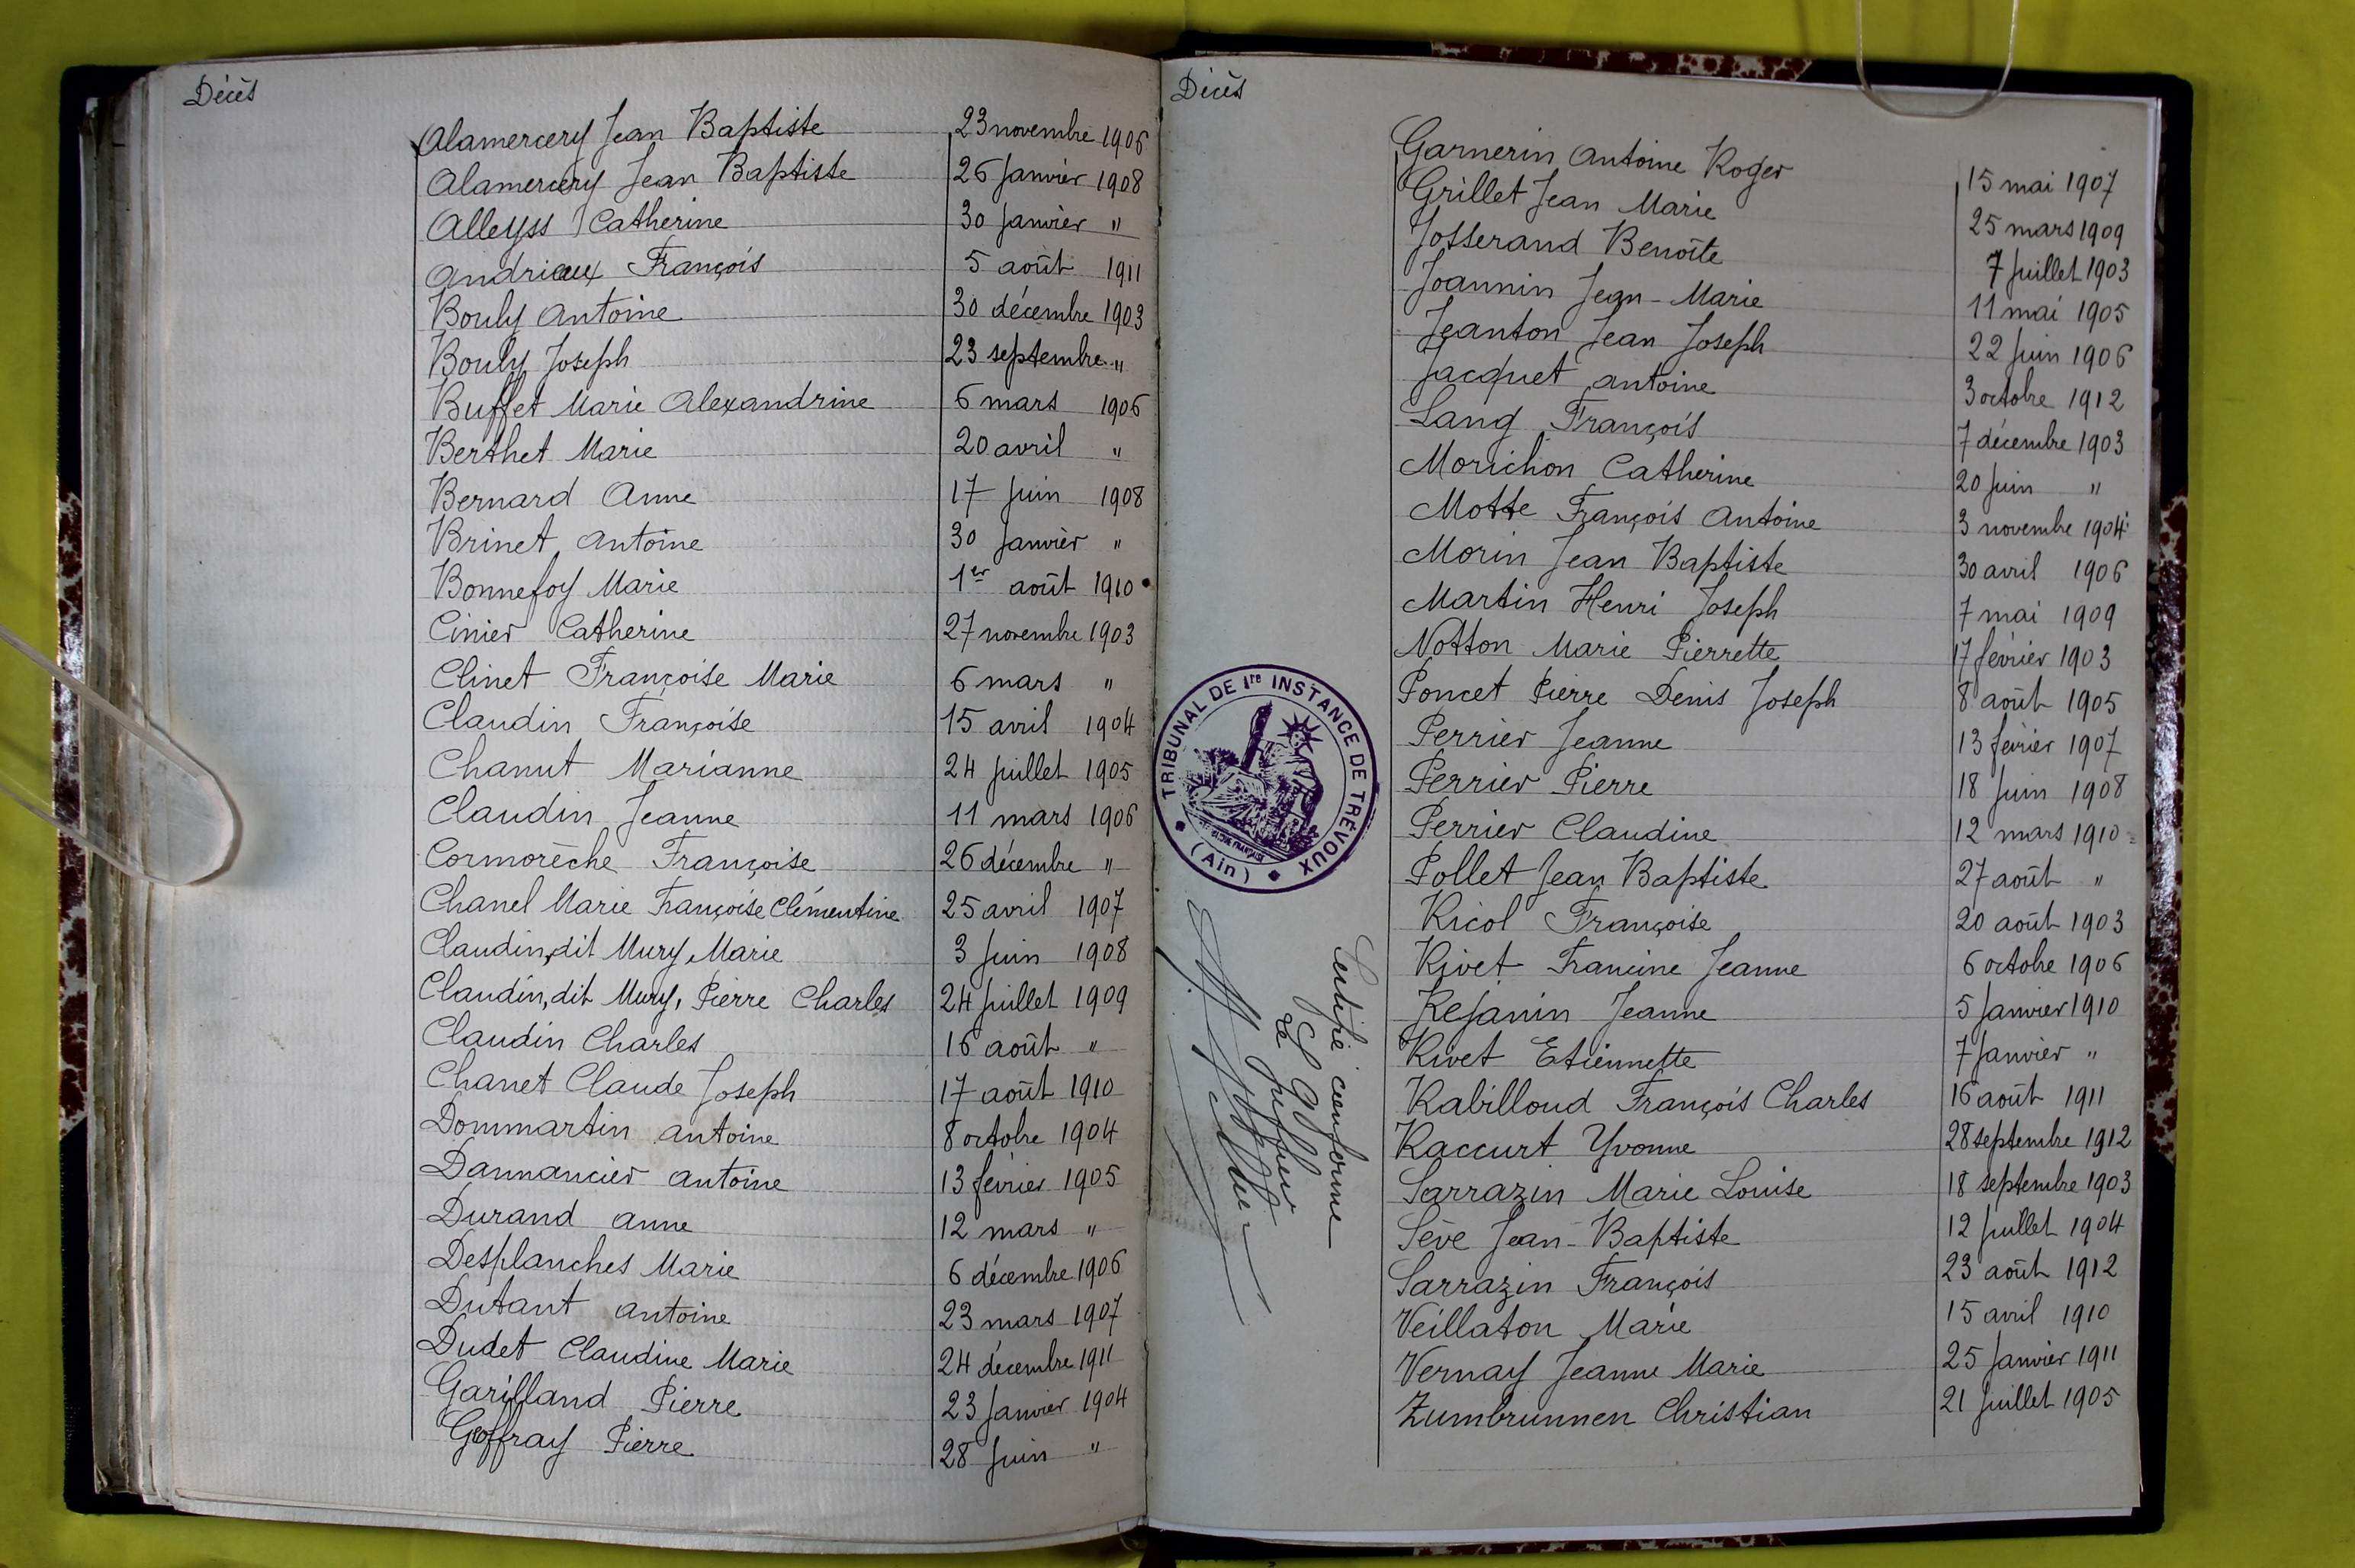 Décès
Alamercery Jean Baptiste 23 novembre 1906
Alamercery Jean Baptiste 26 Janvier 1908
Alleyss Catherine 30 Janvier "
Andrieux François 5 août 1911
Bouly Antoine 30 décembre 1903
Bouly Joseph 23 septembre "
Buffet Marie Alexandrine 6 mars 1906
Berthet Marie 20 avril "
Bernard Anne 17 Juin 1908
Brinet Antoine 30 Janvier "
Bonnefoy Marie 1er août 1910
Cinier Catherine 27 novembre 1903
Clinet Françoise Marie 6 mars "
Claudin Françoise 15 avril 1904
Chanut Marianne 24 Juillet 1905
Claudin Jeanne 11 mars 1906
Cormorèche Françoise 26 décembre "
Chanel Marie Françoise Clémentine 25 avril 1907
Claudin, dit Mury, Marie 3 Juin 1908
Claudin, dit Mury, Pierre Charles 24 Juillet 1909
Claudin Charles 16 août "
Chanet Claude Joseph 17 août 1910
Dommartin Antoine 8 octobre 1904
Dannancier Antoine 13 février 1905
Durand Anne 12 mars "
Desplanches Marie 6 décembre 1906
Dutant Antoine 23 mars 1907
Dudet Claudine Marie 24 décembre 1911
Garilland Pierre 23 Janvier 1904
Geoffray Pierre 28 Juin "
Décès
Garnerin Antoine Roger 15 mai 1907
Grillet Jean Marie 25 mars 1909
Josserand Benoîte 7 Juillet 1903
Joannin Jean-Marie 11 mai 1905
Jeanton Jean Joseph 22 Juin 1906
Jacquet Antoine 3 octobre 1912
Lang François 7 décembre 1903
Morichon Catherine 20 Juin "
Motte François Antoine 3 novembre 1904
Morin Jean Baptiste 30 avril 1906
Martin Henri Joseph 7 mai 1909
Notton Marie Pierrette 17 février 1903
Poncet Pierre Denis Joseph 8 août 1905
Perrier Jeanne 13 février 1907
Perrier Pierre 18 Juin 1908
Perrier Claudine 12 mars 1910
Pollet Jean Baptiste 27 août "
Ricol Françoise 20 août 1903
Rivet Francine Jeanne 6 octobre 1906
Rejanin Jeanne 5 Janvier 1910
Rivet Etiennette 7 Janvier "
Rabilloud François Charles 16 août 1911
Raccurt Yvonne 28 septembre 1912
Sarrazin Marie Louise 18 septembre 1903
Sève Jean-Baptiste 12 Juillet 1904
Sarrazin François 23 août 1912
Veillaton Marie 15 avril 1910
Vernay Jeanne Marie 25 Janvier 1911
Zumbrunnen Christian 21 Juillet 1905
TRIBUNAL DE Ire INSTANCE DE TRÉVOUX
(Ain)
Certifié conforme
Le Greffier